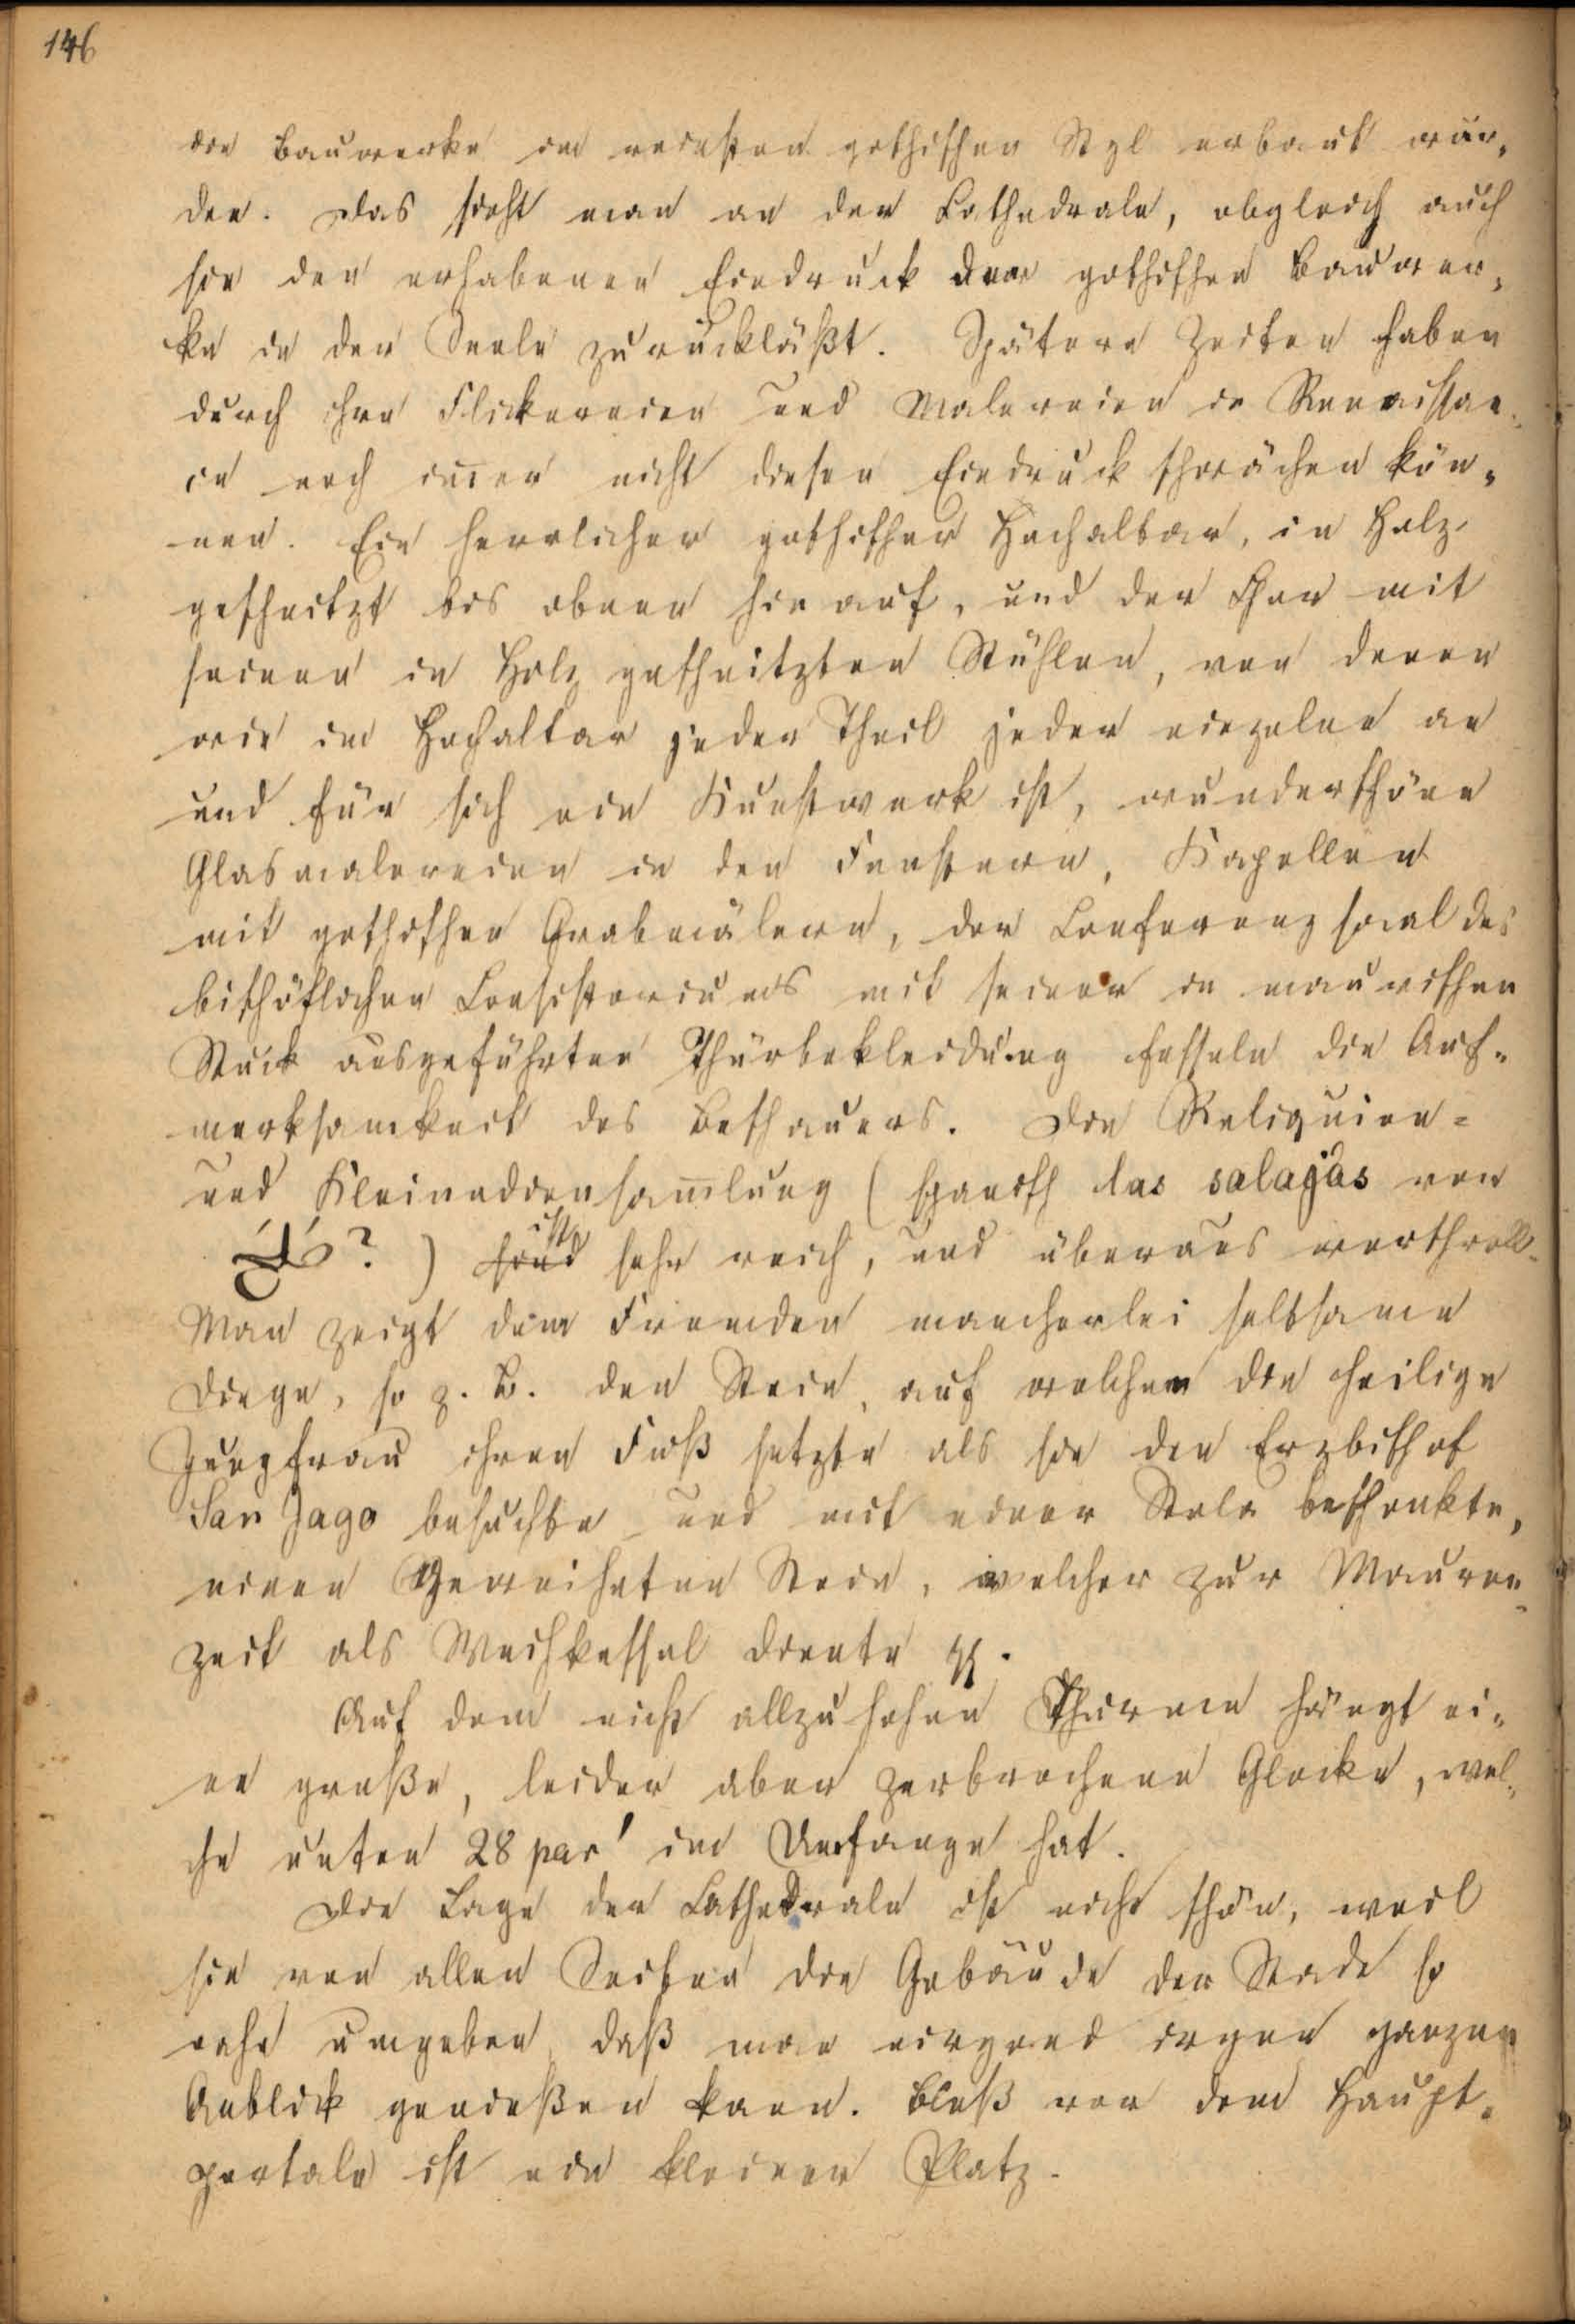 146
die Bauwerke im reinsten gothischen Styl erbaut wur-
den. Das sieht man an der Cathedrale, obgleich auch
sie den erhabenen Eindruck der gothischen Bauwer-
ke in der Seele zurückläßt. Spätere Zeiten haben
durch ihre Flickereien und Malereien in Renaissan-
ce noch im̄er nicht diesen Eindruck schwächen kön-
nen. Ein herrlicher gothischer Hochaltar, in Holz
geschnitzt bis oben hinauf, und der Chor mit
seinen in Holz geschnitzten Stühlen, von denen
wie im Hochaltar jeder Theil jeder einzelne an
und für sich ein Kunstwerk ist, wunderschöne
Glasmalereien in den Fenstern, Kapellen
mit gothischen Grabmälern, der Conferenzsaal des
bischöflichen Consistoriums mit seiner in maurischen
Stuck ausgeführten Thürbekleidung fesseln die Auf-
merksamkeit des Beschauers. Die Reliquien-
und Kleinodiensam̄lung (spanisch las salajas von
? ) ist sehr reich, und überaus werthvoll.
Man zeigt dem Fremden mancherlei seltsame
Dinge, so z. B. den Stein, auf welchen die heilige
Jungfrau ihren Fuß setzte als sie den Erzbischof
San Jago besuchte und mit einer Stola beschenkte,
einen Geweihten Stein, welcher zur Mauren-
zeit als Weihkessel diente
Auf dem nicht allzuhohen Thurme hängt ei-
ne große, leider aber zerbrochene Glocke, wel-
che unten 28 par' im Umfange hat.
Die Lage der Cathedrale ist nicht schön, weil
sie von allen Seiten die Gebäude der Stadt so
nahe umgeben, daß man nirgend ganzen
Anblick genießen kann. Bloß vor dem Haupt-
portale ist ein kleiner Platz.